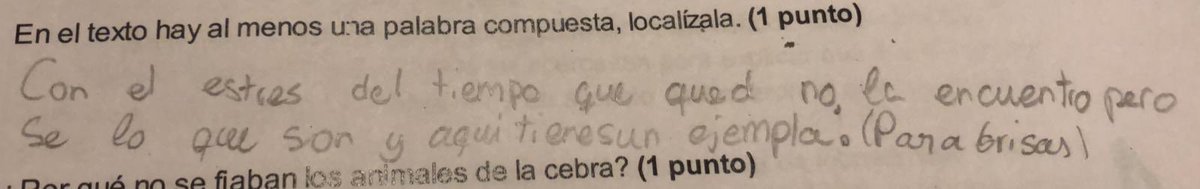 En el texto hay al menos una palabra compuesta, localízala. (1 punto)
Con el estres del tiempo que qued no, la encuentro pero
Se lo que son y aqui tienes un ejempla. (Para brisas)
¿Por qué no se fiaban los animales de la cebra? (1 punto)